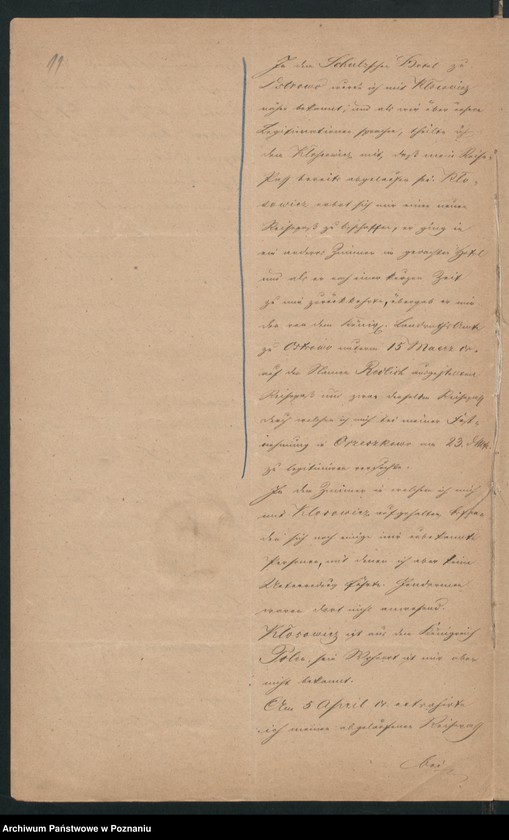 In dem Schulz'schen Hotel zu
Ostrowo wurde ich mit Klosowicz
näher bekannt, und als wir über unsere
Legitimationen sprachen, theilte ich
dem Klosowicz mit, daß mein Reise
Paß bereits abgelaufen sei. Klo-
sowicz erbot sich mir einen neuen
Reisepaß zu beschaffen, er ging in
ein anderes Zimmer in gedachten Hotel
und als er nach einer kurzen Zeit
zu mir zurückkehrte, übergab er mir
den von dem Königl. Landraths Amte
zu Ostrowo unterm 15 Maerz cr.
auf den Namen Redlich ausgestellten
Reisepaß und zwar denselben Reisepaß
durch welchen ich mich bei meiner Fest-
nehmung in Orzeszkowo am 23.
zu legitimiren versuchte.
In dem Zimmer in welchen ich mich
mit Klosowicz aufgehalten, befan
den sich noch einige mir unbekannte
Personen, mit denen ich aber keine
Unterredung führte. Gendarmen
waren dort nicht anwesend.
Klosowicz ist aus dem Königreich
Polen, sein Wohnort ist mir aber
nicht bekannt.
Am 5 April cr.
ich meinen abgelaufenen Reisepaß
bei
Archiwum Państwowe w Poznaniu